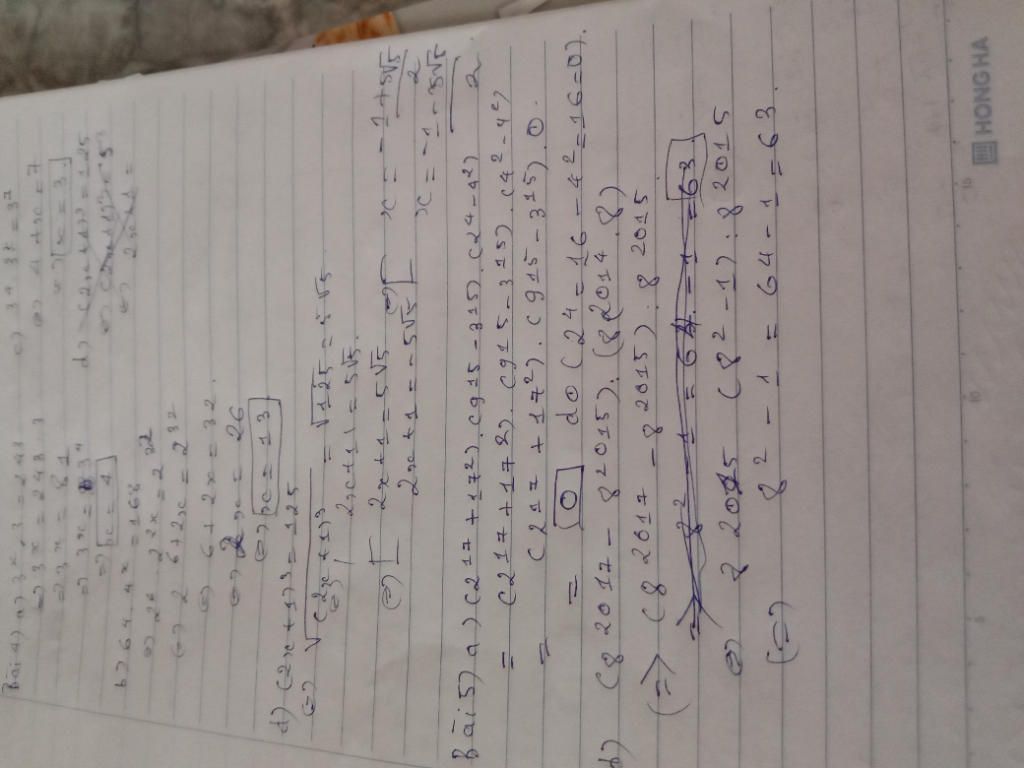 Bài 4) a) 3x : 3 = 243
=> 3x = 243 . 3
=> 3x = 81
=> 3x = 3⁴
=> x = 4
b) 64 . 4x = 168
(=) 26 . 22x = 2 32
(=) 2 6+2x = 2 32
(=) 6 + 2x = 32
(=) 2x = 26
(=) x = 13
c) 34 . 3x = 37
(=) 4 + x = 7
=) x = 3
d) (2x + 1)³ = 125
(=) (2x + 1)³ = 5³
(=) 2x + 1 =
d) (2x + 1)³ = 125
(=) √(2x + 1)³ = √125 = 5√5
(=) | 2x + 1 | = 5√5
(=) [ 2x + 1 = 5√5 (=) [ x = -1 + 5√5 / 2
2x + 1 = -5√5 x = -1 - 5√5 / 2
Bài 5) a) (217 + 172) . (915 - 315) . (24 - 42)
= (217 + 172) . (915 - 315) . (42 - 42)
= (217 + 172) . (915 - 315) . 0.
= 0 do (24 = 16 - 42 - 16 = 0).
b) (8 2017 - 8 2015) . (8 2014 . 8)
(=> (8 2017 - 8 2015) . 8 2015
=> 8² - 1 = 64 - 1 = 63
(=) 8 2015 (8² - 1) . 8 2015
(=) 8² - 1 = 64 - 1 = 63.
HONG HA